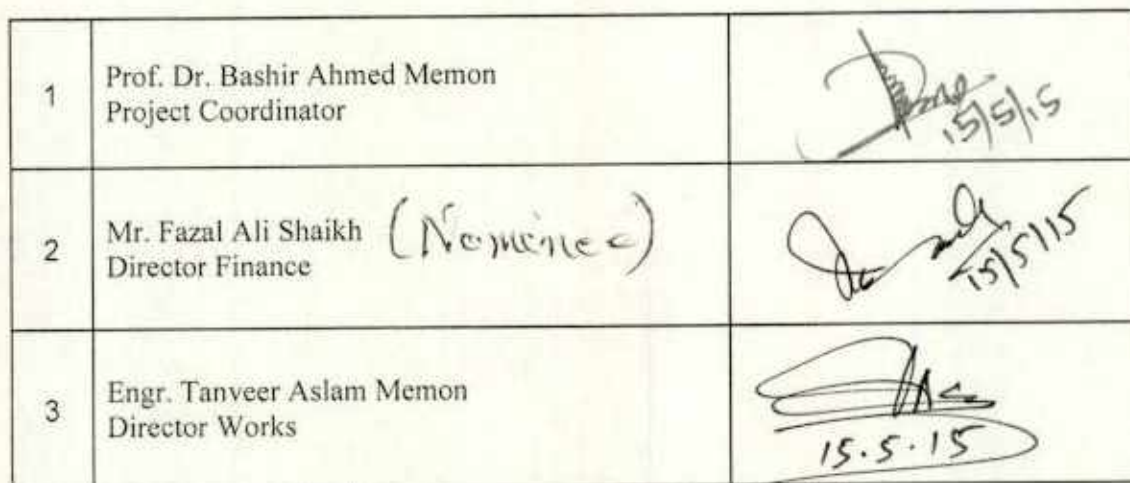 1
Prof. Dr. Bashir Ahmed Memon
Project Coordinator
15/5/15
2
Mr. Fazal Ali Shaikh (Nominee)
Director Finance
15/5/15
3
Engr. Tanveer Aslam Memon
Director Works
15.5.15